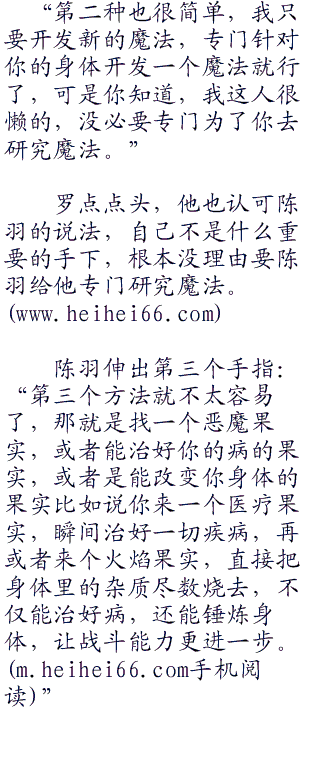 “第二种也很简单，我只
要开发新的魔法，专门针对
你的身体开发一个魔法就行
了，可是你知道，我这人很
懒的，没必要专门为了你去
研究魔法。”
罗点点头，他也认可陈
羽的说法，自己不是什么重
要的手下，根本没理由要陈
羽给他专门研究魔法。
(www.heihei66.com)
陈羽伸出第三个手指：
“第三个方法就不太容易
了，那就是找一个恶魔果
实，或者能治好你的病的果
实，或者是能改变你身体的
果实比如说你来一个医疗果
实，瞬间治好一切疾病，再
或者来个火焰果实，直接把
身体里的杂质尽数烧去，不
仅能治好病，还能锤炼身
体，让战斗能力更进一步。
(m.heihei66.com手机阅
读)”